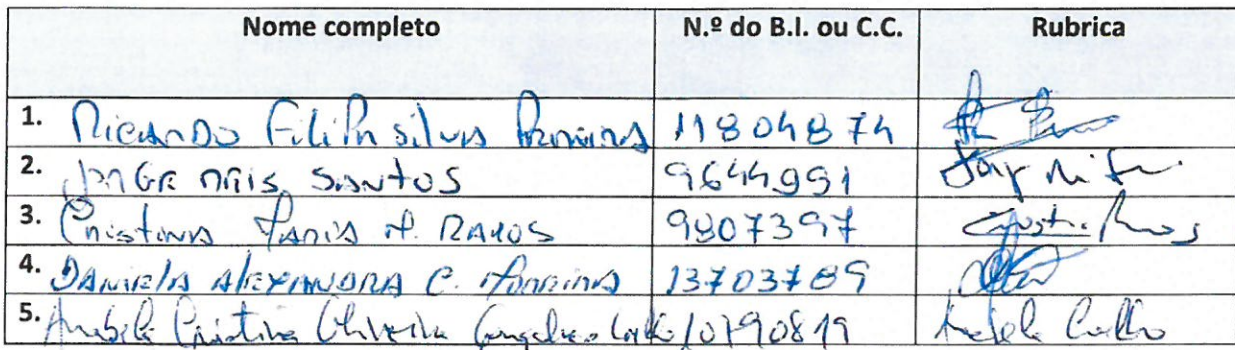 Nome completo N.º do B.I. ou C.C. Rubrica
1. Ricardo Filipe Silva Ferreira 11804874
2. Jorge Reis Santos 9644991
3. Cristina Maria P. Ramos 9807397
4. Daniela Alexandra C. Moreira 13703789
5. Anabela Cristina Oliveira Gonçalves Coelho 10790819 Anabela Coelho